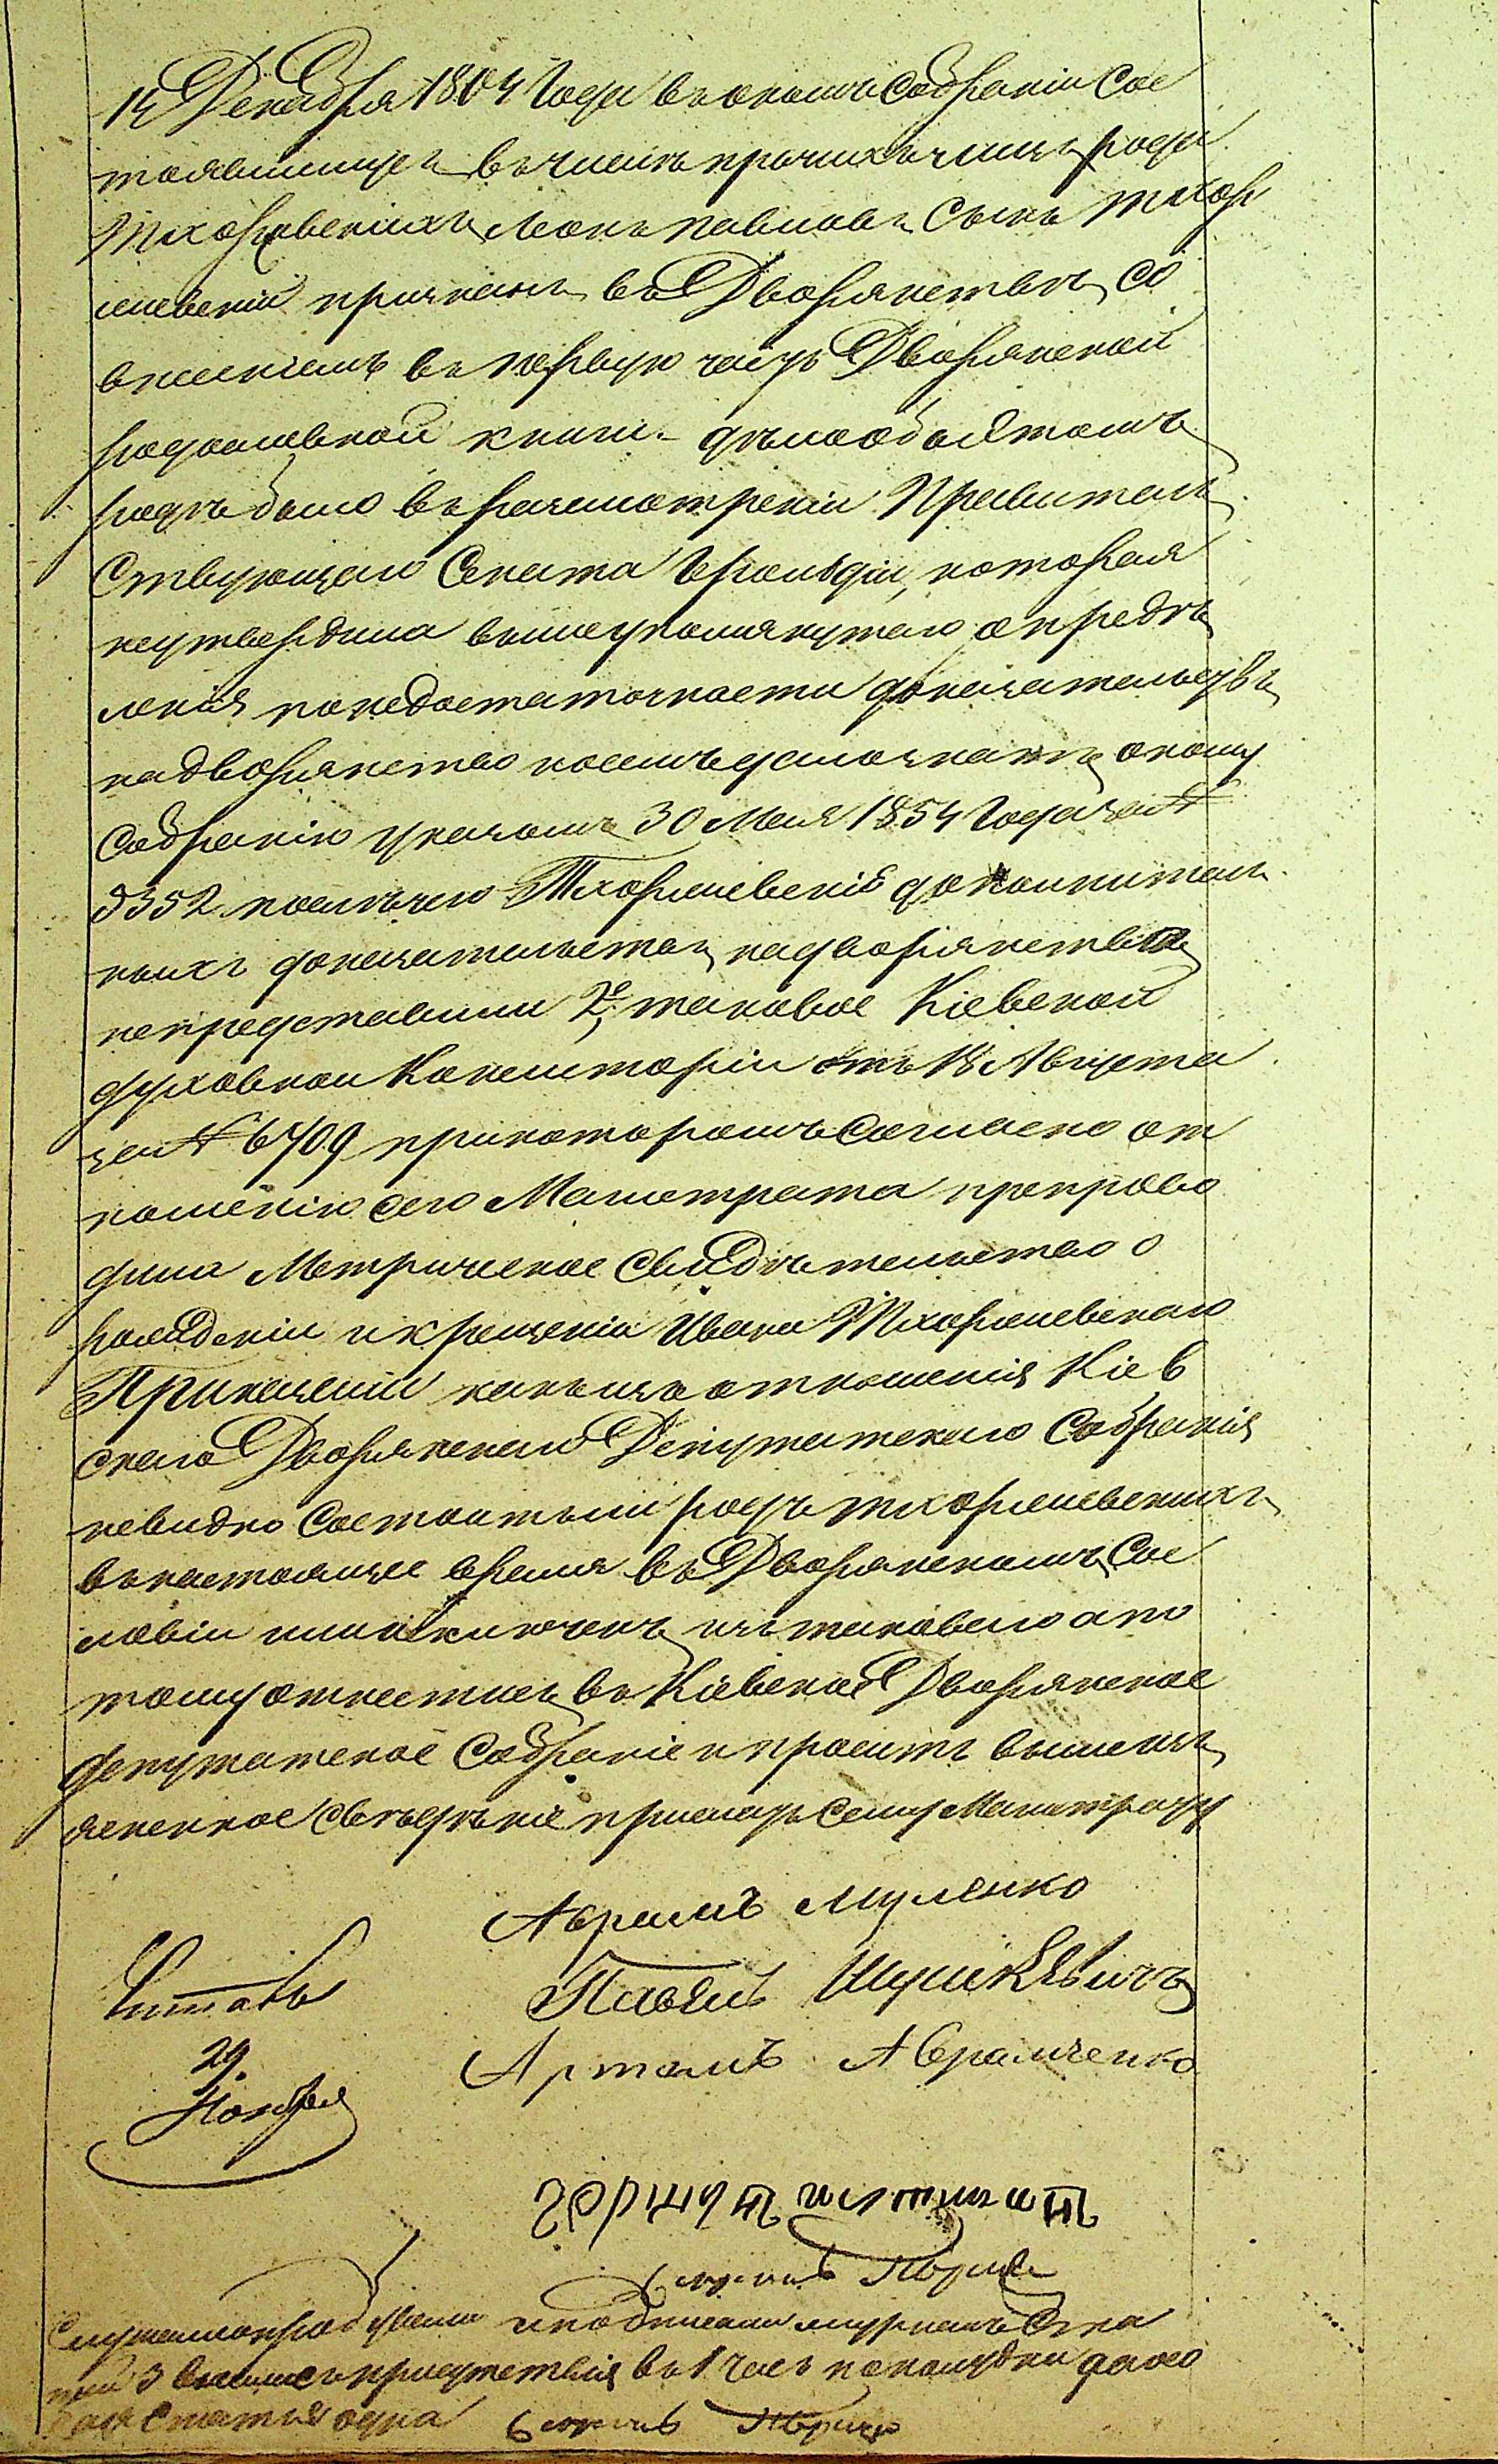 14 Декабря 1804 Года въ ономъ Собраніи Сос
тоявшимся въ числѣ прочихъ лицъ рода
Тхоржевскихъ Леонъ Павловъ Сынъ Тхор
жевскій признанъ въ Дворянствѣ, со
внесеніемъ въ первую часть Дворянской
родословной книги. дѣло объ этомъ
родѣ было въ разсмотреніи Правитель
Ствующаго Сената Герольдіи, которая
неутвердила вышеупомянутаго опредѣ
ленія по недостаточности доказательствъ
на дворянство о чемъ дано знать оному
Собранію указомъ 30 Мая 1854 Года за №
5352 послѣ чего Тхоржевскіе дополнитель
ныхъ доказательствъ на дворянство
непредставили 2е, таковое Кіевской
духовной Консисторіи отъ 18 Августа
за № 6709 при которомъ Согласно от
ношенію сего Магистрата препрово
дила Метрическое Свидѣтельство о
рожденіи и крещеніи Ивана Тхоржевскаго
Приказали какъ изъ отношенія Кіев
скаго Дворянскаго Депутатскаго Собранія
невидно Состоитъ ли родъ Тхоржевскихъ
въ настоящее время въ Дворянскомъ Сос
ловіи или исключенъ изъ таковаго а по
тому отнестись въ Кіевское Дворянское
депутатское Собраніе и просить вышеизъ
ясненное Свѣденіе прислать Сему Магистрату
Абрамъ Муленко
Читалъ Павелъ
29 Артемъ Авраменко
Ноября
Слушали и подписали журналъ Ста
тей 3 вышли съ присутствія въ 1 часъ пополудни
Статья одна